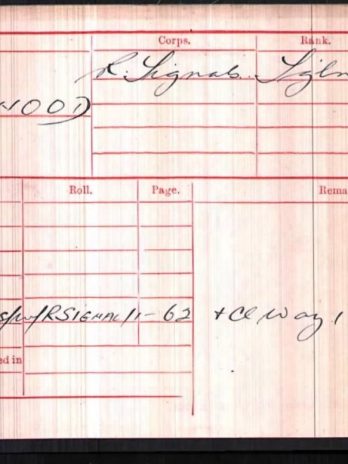 Corps. Rank.
R. Signals. Sgln
WOOD
Roll. Page. Rema
S/w/RSIGNAL/1- 62 + Cl
ed in